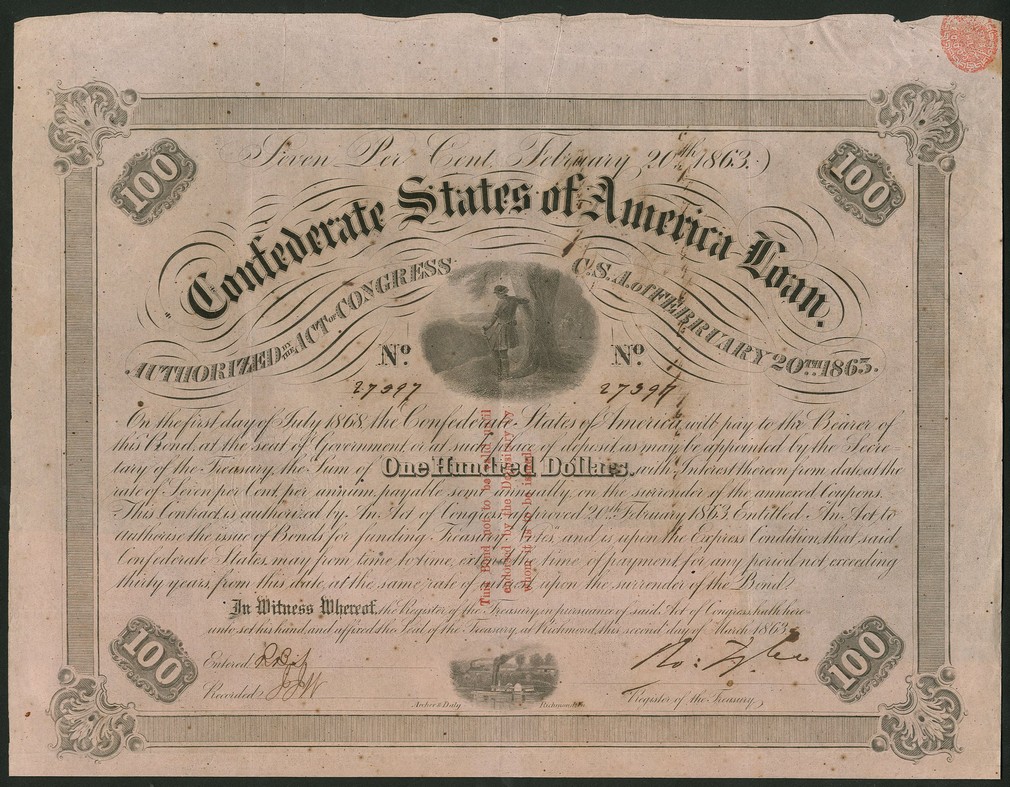 Seven Per Cent. February 20th 1863.
100
100
Confederate States of America Loan.
AUTHORIZED BY THE ACT OF CONGRESS
C.S.A. of FEBRUARY 20TH 1863.
No
No
27397
27397
On the first day of July 1868, the Confederate States of America, will pay to the Bearer of
this Bond, at the seat of Government, or at such place of deposit as may be appointed by the Secre-
tary of the Treasury, the Sum of One Hundred Dollars. with Interest thereon from date, at the
rate of Seven per Cent, per annum, payable semi annually, on the surrender of the annexed Coupons.
This Contract is authorized by An Act of Congress, approved 20th February 1863, Entitled An Act to
authorise the issue of Bonds for funding Treasury Notes, and is upon the Express Condition, that said
Confederate States, may from time to time, extend the time of payment for any period not exceeding
thirty years, from this date, at the same rate of interest, upon the surrender of the Bond.
This Bond not to be valid until
endorsed by the Depositary by
whom it is to be issued.
In Witness Whereof, the Register of the Treasury, in pursuance of said Act of Congress, hath here-
unto set his hand, and affixed the Seal of the Treasury, at Richmond, this second day of March 1863.
100
100
Entered
Ro: Tyler
Recorded
Register of the Treasury
Archer & Daly Richmond, Va